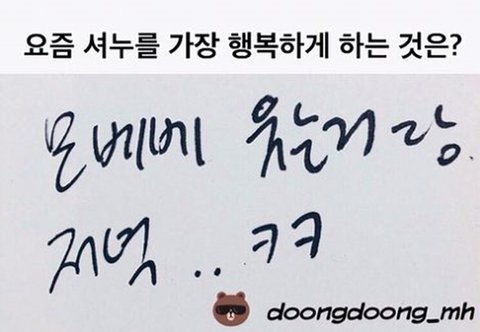 요즘 셔누를 가장 행복하게 하는 것은?
몬베베 웃는거랑
저녁..ㅋㅋ
doongdoong_mh